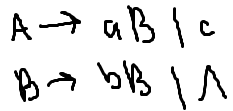 A → aB | c
B → bB | Λ